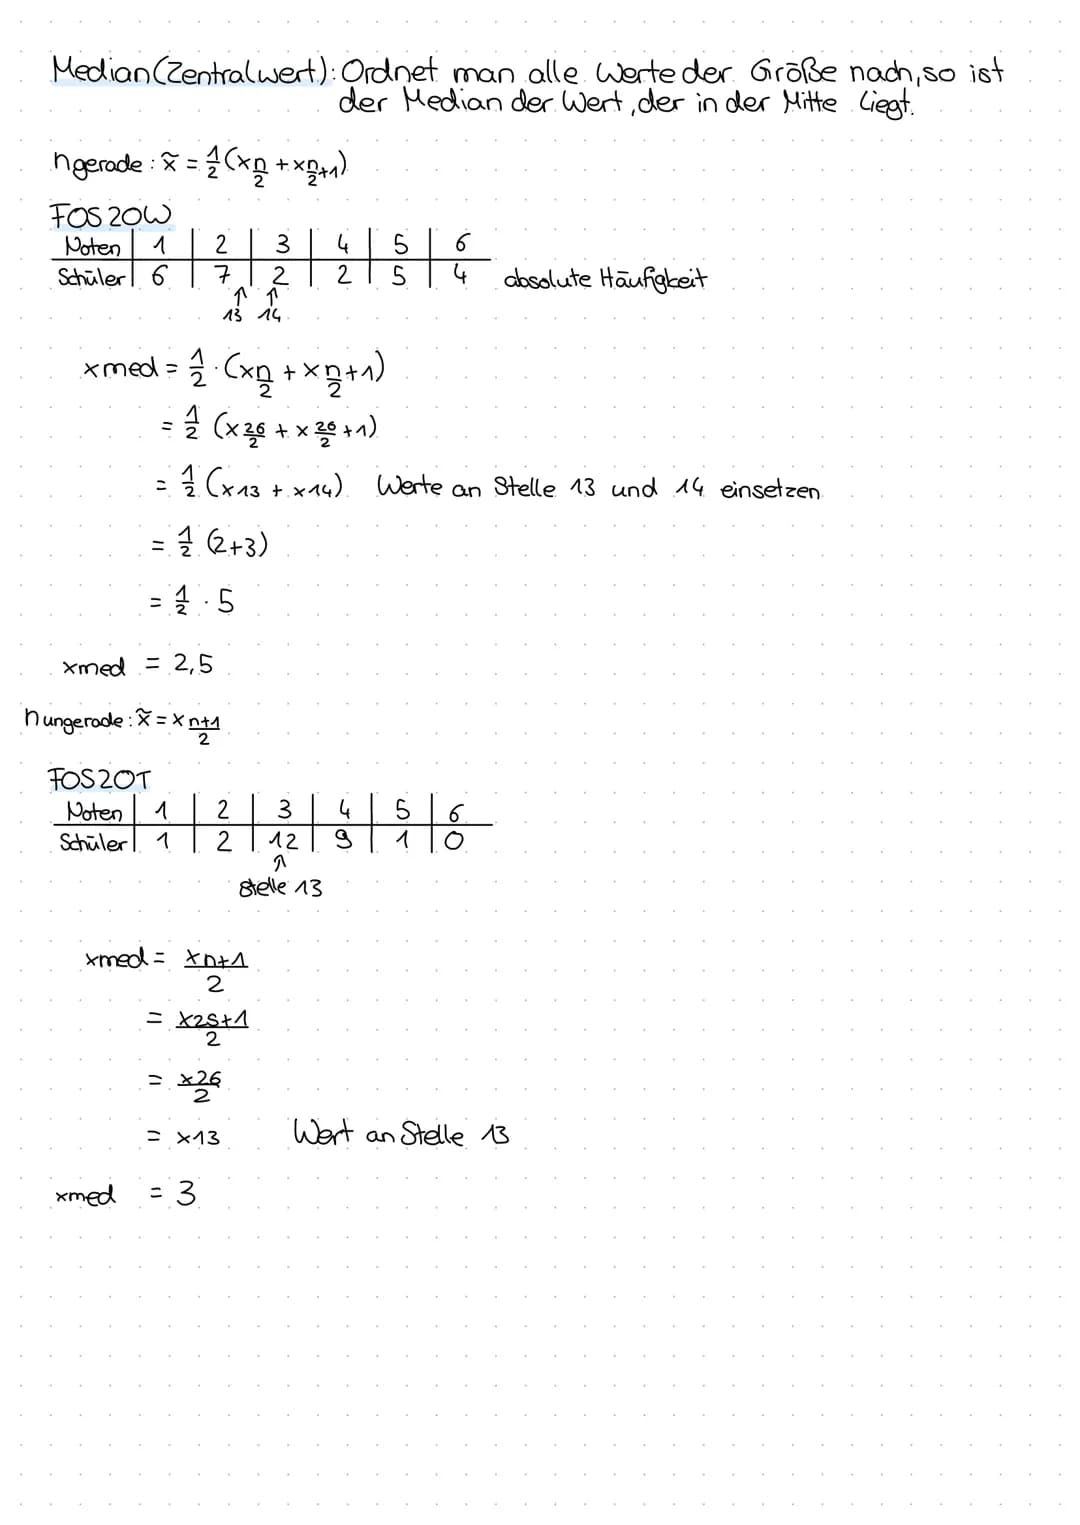 Median (Zentralwert): Ordnet man alle Werte der Größe nach, so ist
der Median der Wert, der in der Mitte liegt.
n gerade: x̃ = 1/2 (x n/2 + x n/2+1)
FOS 20W
Noten | 1 | 2 | 3 | 4 | 5 | 6
Schüler | 6 | 7 | 2 | 2 | 5 | 4 absolute Häufigkeit
↑ ↑
13 14
xmed = 1/2 · (x n/2 + x n/2+1)
= 1/2 (x 26/2 + x 26/2 +1)
= 1/2 (x13 + x14) Werte an Stelle 13 und 14 einsetzen
= 1/2 (2+3)
= 1/2 · 5
xmed = 2,5
n ungerade: x̃ = x n+1/2
FOS20T
Noten | 1 | 2 | 3 | 4 | 5 | 6
Schüler | 1 | 2 | 12 | 9 | 1 | 0
↑
Stelle 13
xmed = x n+1/2
= x25+1/2
= x26/2
= x13 Wert an Stelle 13
xmed = 3